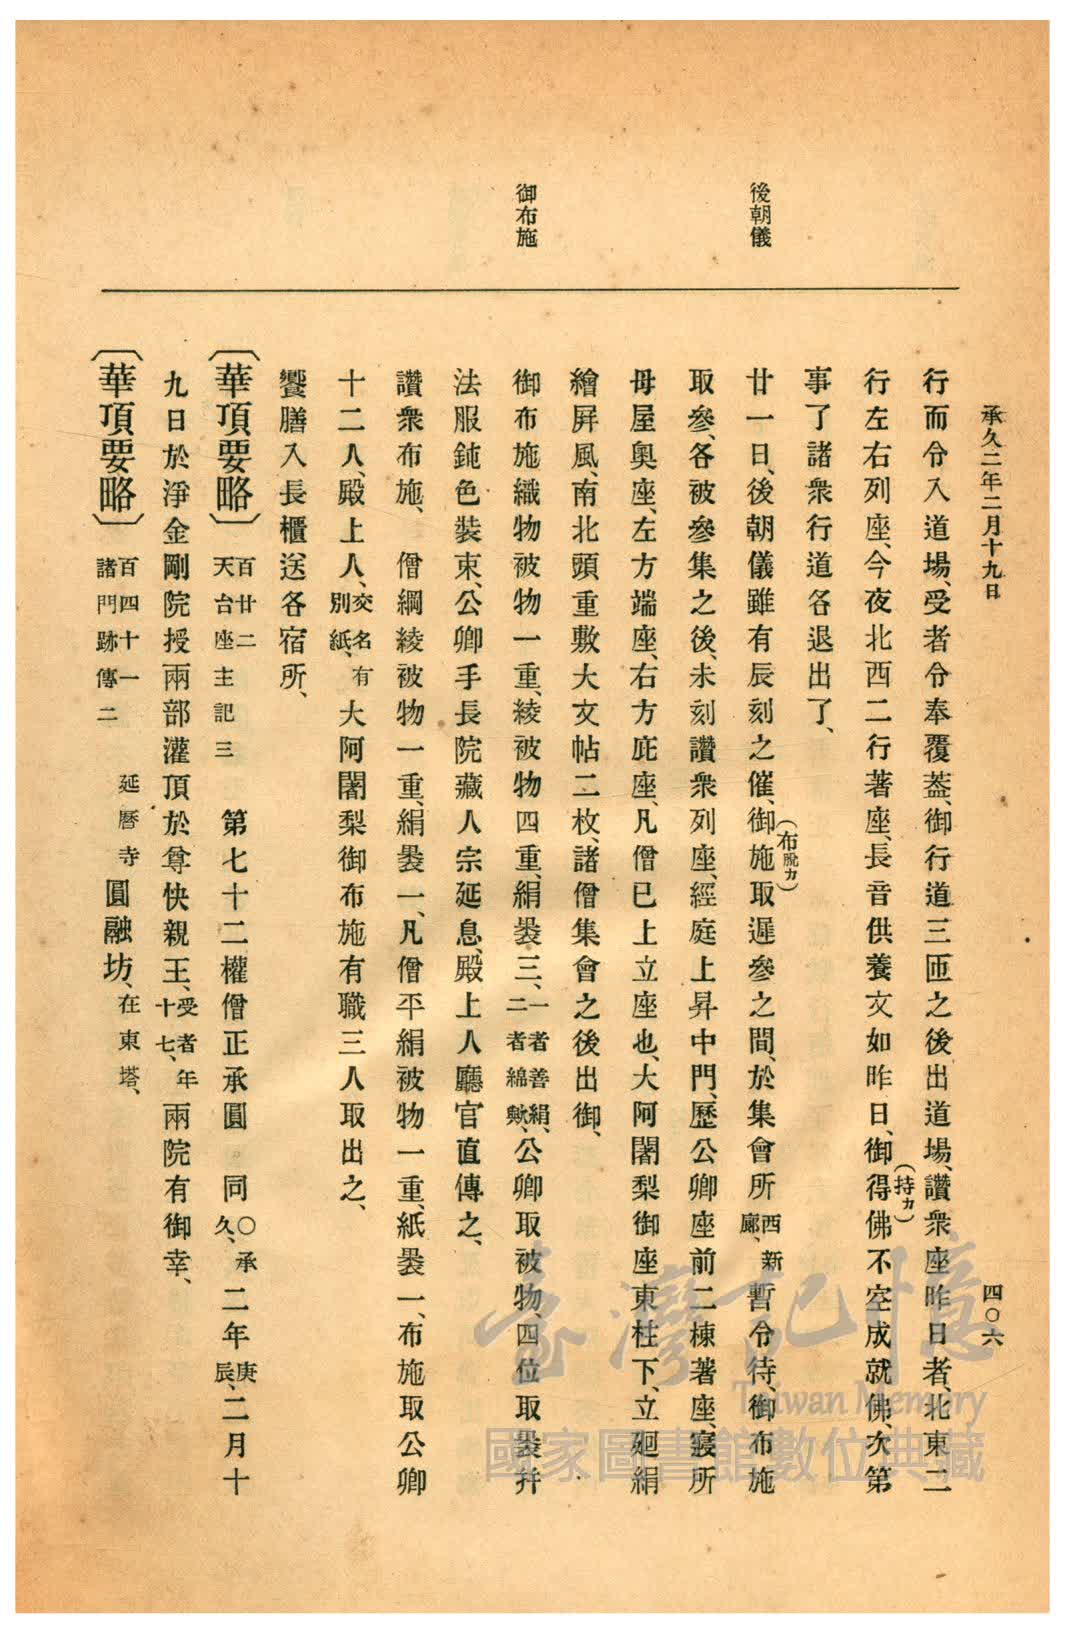 承久二年二月十九日
四〇六
後朝儀
御布施
行而令入道場、受者令奉覆蓋、御行道三匝之後出道場、讚衆座昨日者、北東二
行左右列座、今夜北西二行著座、長音供養文如昨日、御(持カ)得佛不空成就佛、次第
事了諸衆行道各退出了、
廿一日、後朝儀雖有辰刻之催、御(布脫カ)施取遲參之間、於集會所西新廊、暫令待、御布施
取參、各被參集之後、未刻讚衆列座、經庭上昇中門、歷公卿座前二棟著座、寢所
母屋奧座、左方端座、右方庇座、凡僧已上立座也、大阿闍梨御座東柱下、立廻絹
繪屛風、南北頭重敷大文帖二枚、諸僧集會之後出御、
御布施織物被物一重、綾被物四重、絹裝三、一者善絹、二者綿歟、公卿取被物、四位取裝幷
法服鈍色裝束、公卿手長院藏人宗延息、殿上人廳官直傳之、
讚衆布施、　僧綱綾被物一重、絹裝一、凡僧平絹被物一重、紙裝一、布施取公卿
十二人、殿上人、交名有別紙、大阿闍梨御布施有職三人取出之、
饗膳入長櫃送各宿所、
〔華頂要略〕百廿二天台座主記三　第七十二權僧正承圓。同〇承久、二年庚辰、二月十
九日於淨金剛院授兩部灌頂於尊快親王、受者年十七、兩院有御幸、
〔華頂要略〕百四十一諸門跡傳二　延曆寺圓融坊、在東塔、
臺灣記憶
Taiwan Memory
國家圖書館數位典藏